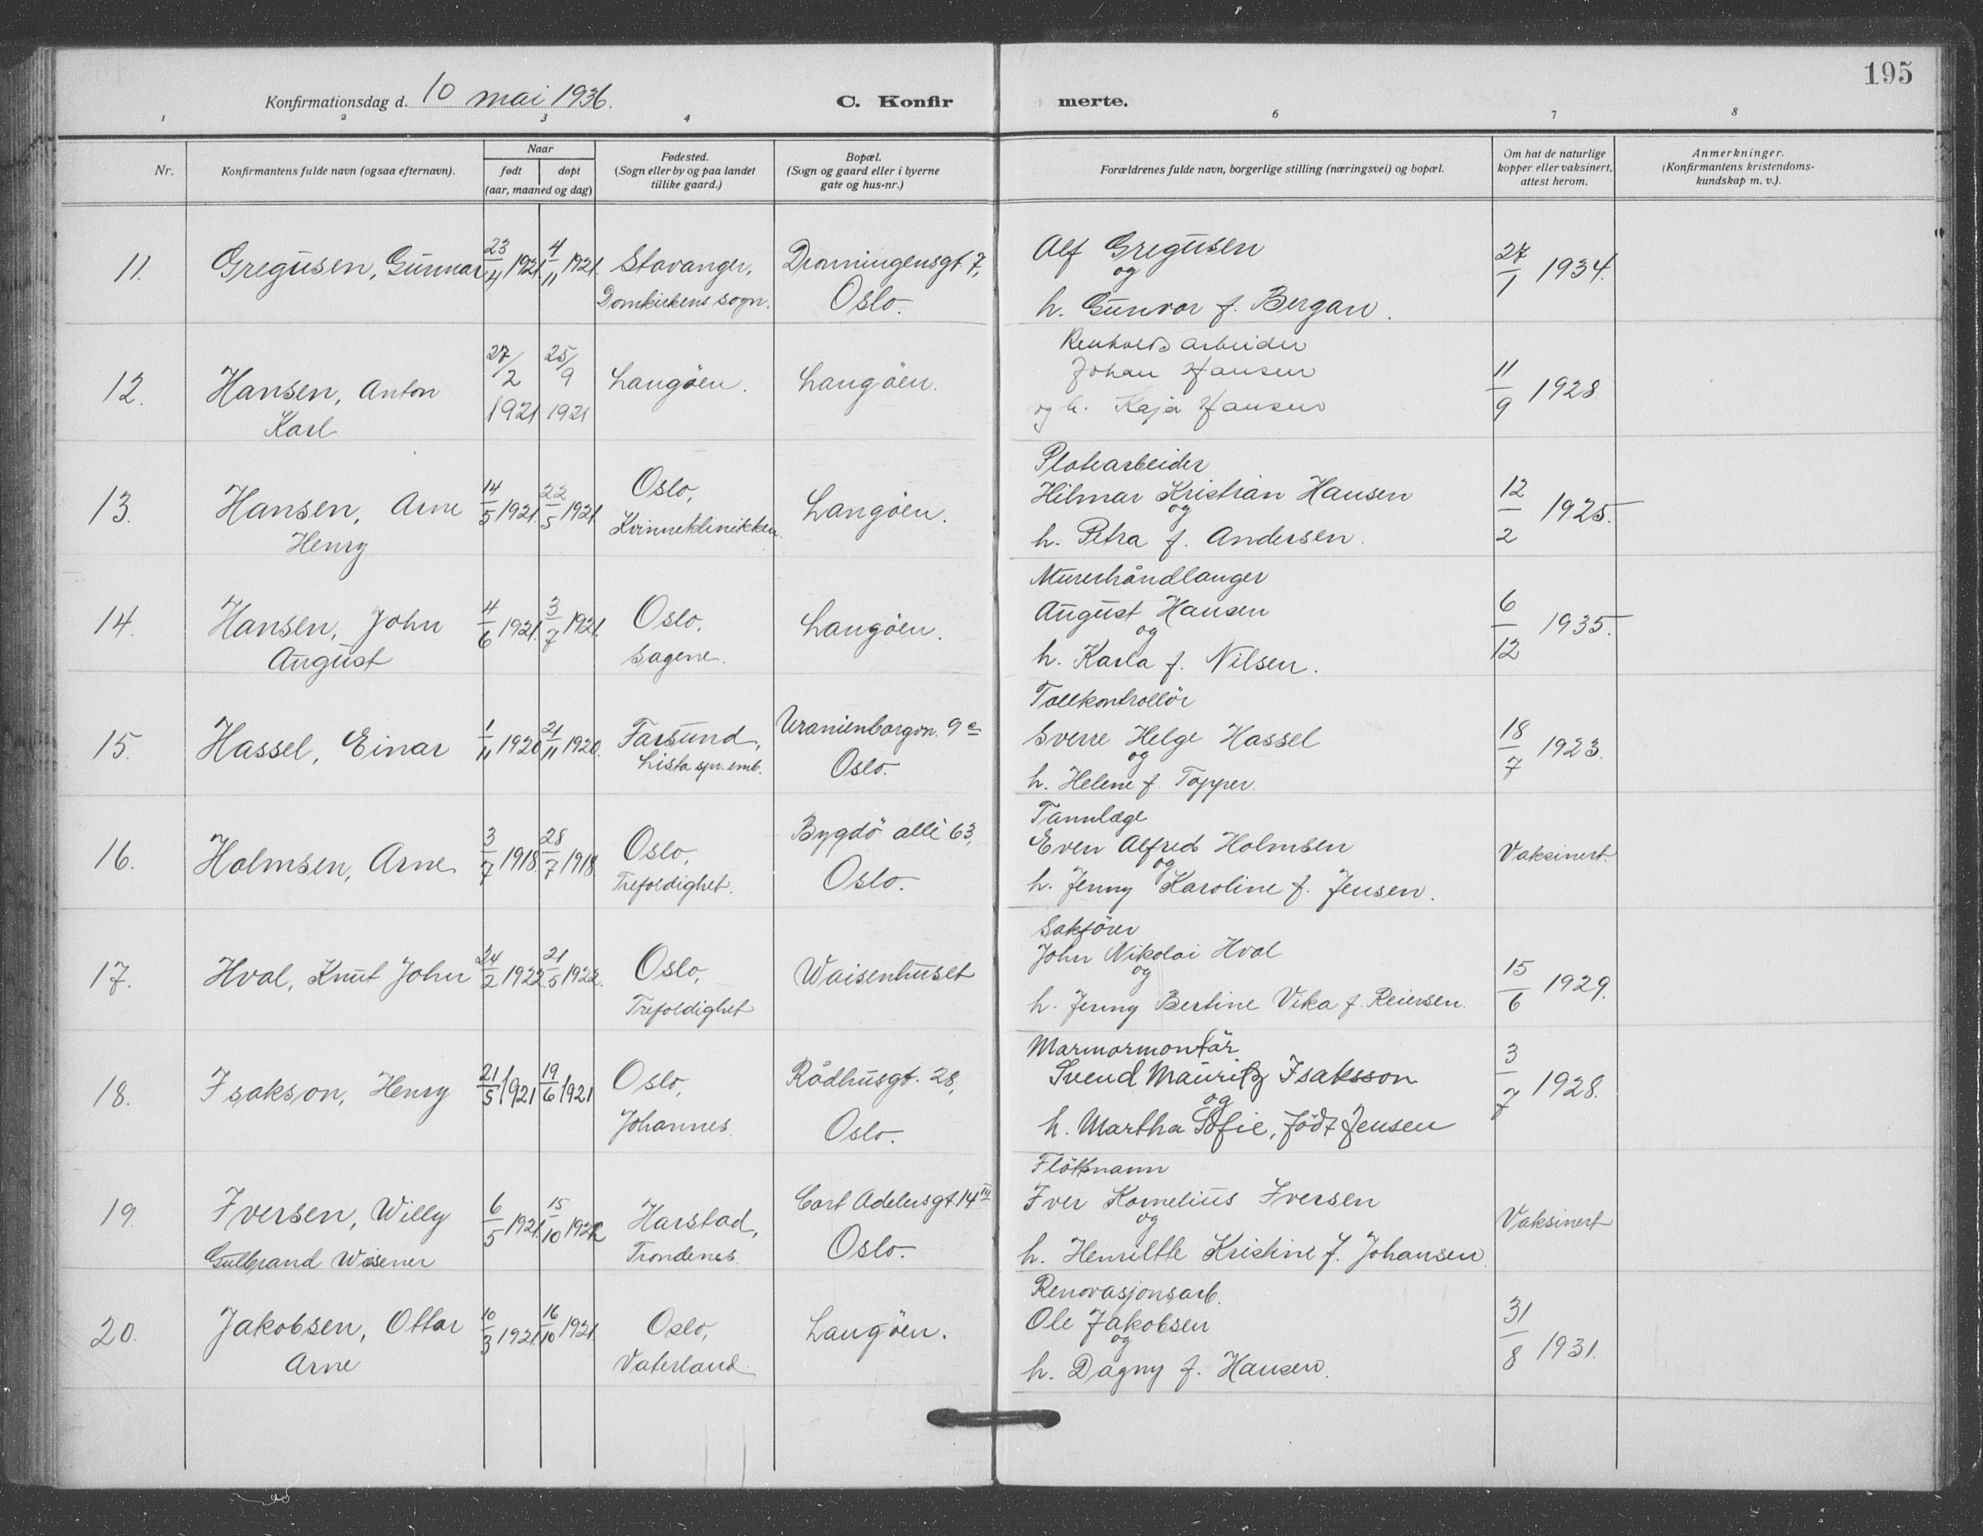 195
Konfirmationsdag d. 10 mai 1936.
C. Konfirmerte.
1 2 3 4 6 7 8
Nr.
Konfirmantens fulde navn (ogsaa efternavn).
Naar
født døpt
(aar, maaned og dag)
Fødested.
(Sogn eller by og paa landet
tillike gaard.)
Bopæl.
(Sogn og gaard eller i byerne
gate og hus-nr.)
Forældrenes fulde navn, borgerlige stilling (næringsvei) og bopæl.
Om hat de naturlige
kopper eller vaksinert,
attest herom.
Anmerkninger.
(Konfirmantens kristendoms-
kundskap m. v.).
11. Gregusen, Gunnar 23/4 1921. 4/11 1921. Stavanger, Domkirkens sogn. Dronningensgt. 7, Oslo.
Alf Gregusen
og
h. Gunvor f. Bergan.
27/1 1934.
12. Hansen, Anton
Karl
27/2 1921 25/9 1921 Langöen. Langöen.
Renholds arbeider
Johan Hansen
og h. Kaja Hansen
11/9 1928.
13. Hansen, Arne
Henry
14/5 1921. 22/5 1921. Oslo, Kvinneklinikken. Langöen.
Platearbeider
Hilmar Kristian Hansen
og
h. Petra f. Andersen.
12/2 1925.
14. Hansen, John
August
4/6 1921. 3/7 1921. Oslo, Sagene. Langöen.
Murerhåndlanger
August Hansen
og
h. Karla f. Nilsen.
6/12 1935.
15. Hassel, Einar 1/11 1920 21/11 1920. Farsund, Lista spr. emb. Uranienborgvn. 9 c Oslo.
Tollkontrollör
Sverre Helge Hassel
og
h. Helene f. Topper.
18/7 1923.
16. Holmsen, Arne 3/7 1918. 28/7 1918 Oslo, Trefoldighet. Bygdö alle 63, Oslo.
Tannlæge
Even Alfred Holmsen
og
h. Jenny Karoline f. Jensen.
Vaksinert.
17. Hval, Knut John 24/2 1922 21/5 1922. Oslo, Trefoldighet Waisenhuset
Sakförer
John Nikolai Hval
og
h. Jenny Bertine Vika f. Reiersen.
15/6 1929.
18. Isakson, Henry 21/5 1921 19/6 1921 Oslo, Johannes. Rådhusgt. 28, Oslo.
Marmormontör
Svend Mauritz Isaksson
og
h. Martha Sofie, född Jensen
3/7 1928.
19. Iversen, Willy
Gulbrand Wisener
6/5 1921. 15/10 1922 Harstad, Trondenes. Cort Adelersgt. 14 IV Oslo.
Flötmann
Iver Kornelius Iversen
og
h. Henriette Kristine f. Johansen.
Vaksinert
20. Jakobsen, Ottar
Arne
10/3 1921. 16/10 1921. Oslo, Vaterland. Langöen.
Renovasjonsarb.
Ole Jakobsen
og
h. Dagny f. Hansen.
31/8 1931.